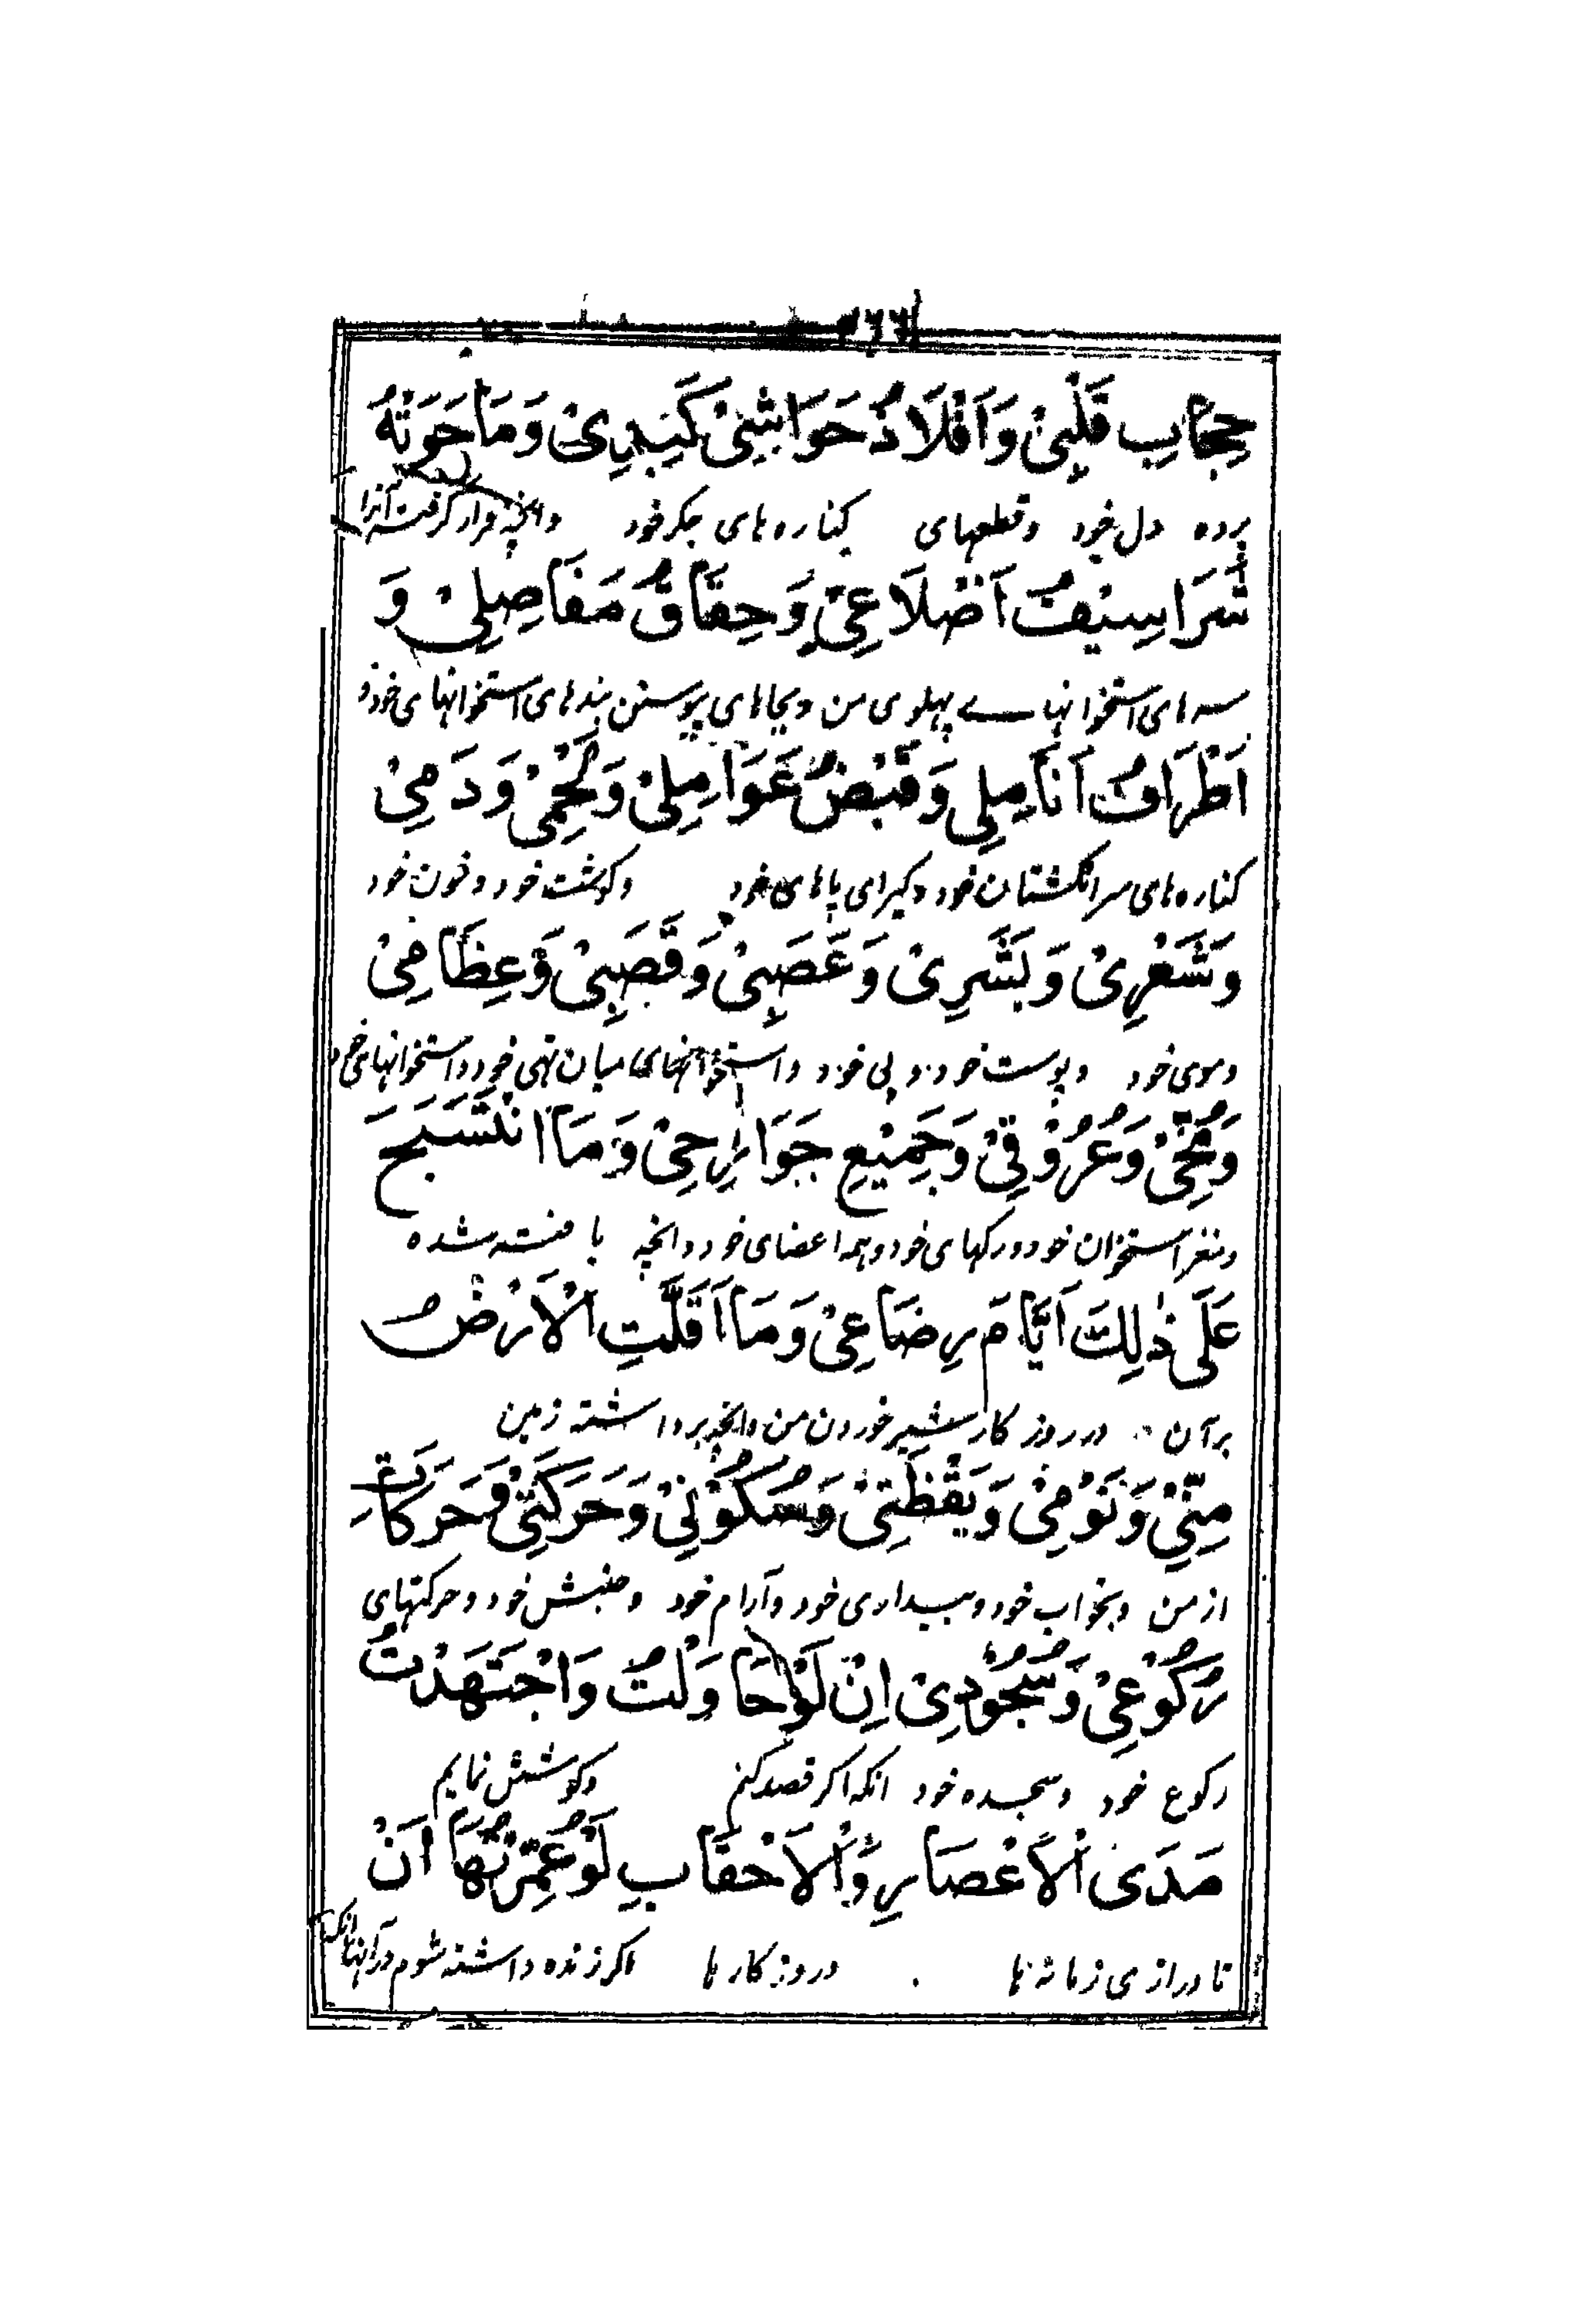 حِجَابِ قَلْبِیْ وَاَفْلَاذُ حَوَاشِیْ كَبِدِیْ وَمَا حَوَتْهُ
پرده دل خود وقطعهای کناره های جکر خود وانچه قرار کرفت آنرا
شَرَاسِیْفُ اَضْلَاعِیْ وَحِقَاقُ مَفَاصِلِیْ وَ
سه های استخوانهاے پهلوی من وبجاهای پیوستن بندهای استخوانهای خود و
اَطْرَافُ اَنَامِلِی وَقَبْضُ عَوَامِلِیْ وَلَحْمِیْ وَدَمِیْ
کناره های سرانکشتان خود وکیرای پاهای خود وکوشت خود وخون خود
وَشَعْرِیْ وَبَشَرِیْ وَعَصَبِیْ وَقَصَبِیْ وَعِظَامِیْ
وموی خود وپوست خود وپی خود واستخوانهای میان تهی خود واستخوانهای خود
وَمُخِّیْ وَعُرُوْقِیْ وَجَمِیْعِ جَوَارِحِیْ وَمَا انْتَسَجَ
ومغز استخوان خود ورکهای خود وهمه اعضای خود وانچه بافته شده
عَلَی ذٰلِكَ اَیَّامَ رِضَاعِیْ وَمَا اَقَلَّتِ الْاَرْضُ
برآن در روز کار شیر خوردن من وانچه برداشته زمین
مِنِّیْ وَنَوْمِیْ وَیَقْظَتِیْ وَسُكُوْنِیْ وَحَرَكَتِیْ وَحَرَكَاتِ
از من وبخواب خود وبیداری خود وآرام خود وجنبش خود وحرکتهای
رُكُوْعِیْ وَسُجُوْدِیْ اِنْ لَوْ حَاوَلْتُ وَاجْتَهَدْتُ
رکوع خود وسجده خود انکه اکر قصد کنم وکوشش نمایم
مَدَی الْاَعْصَارِ وَالْاَحْقَابِ لَوْ عُمِّرْتُهَا اَنْ
تا درازی زمانه ها وروز کارها اکر زنده داشته شوم درآنها انکه